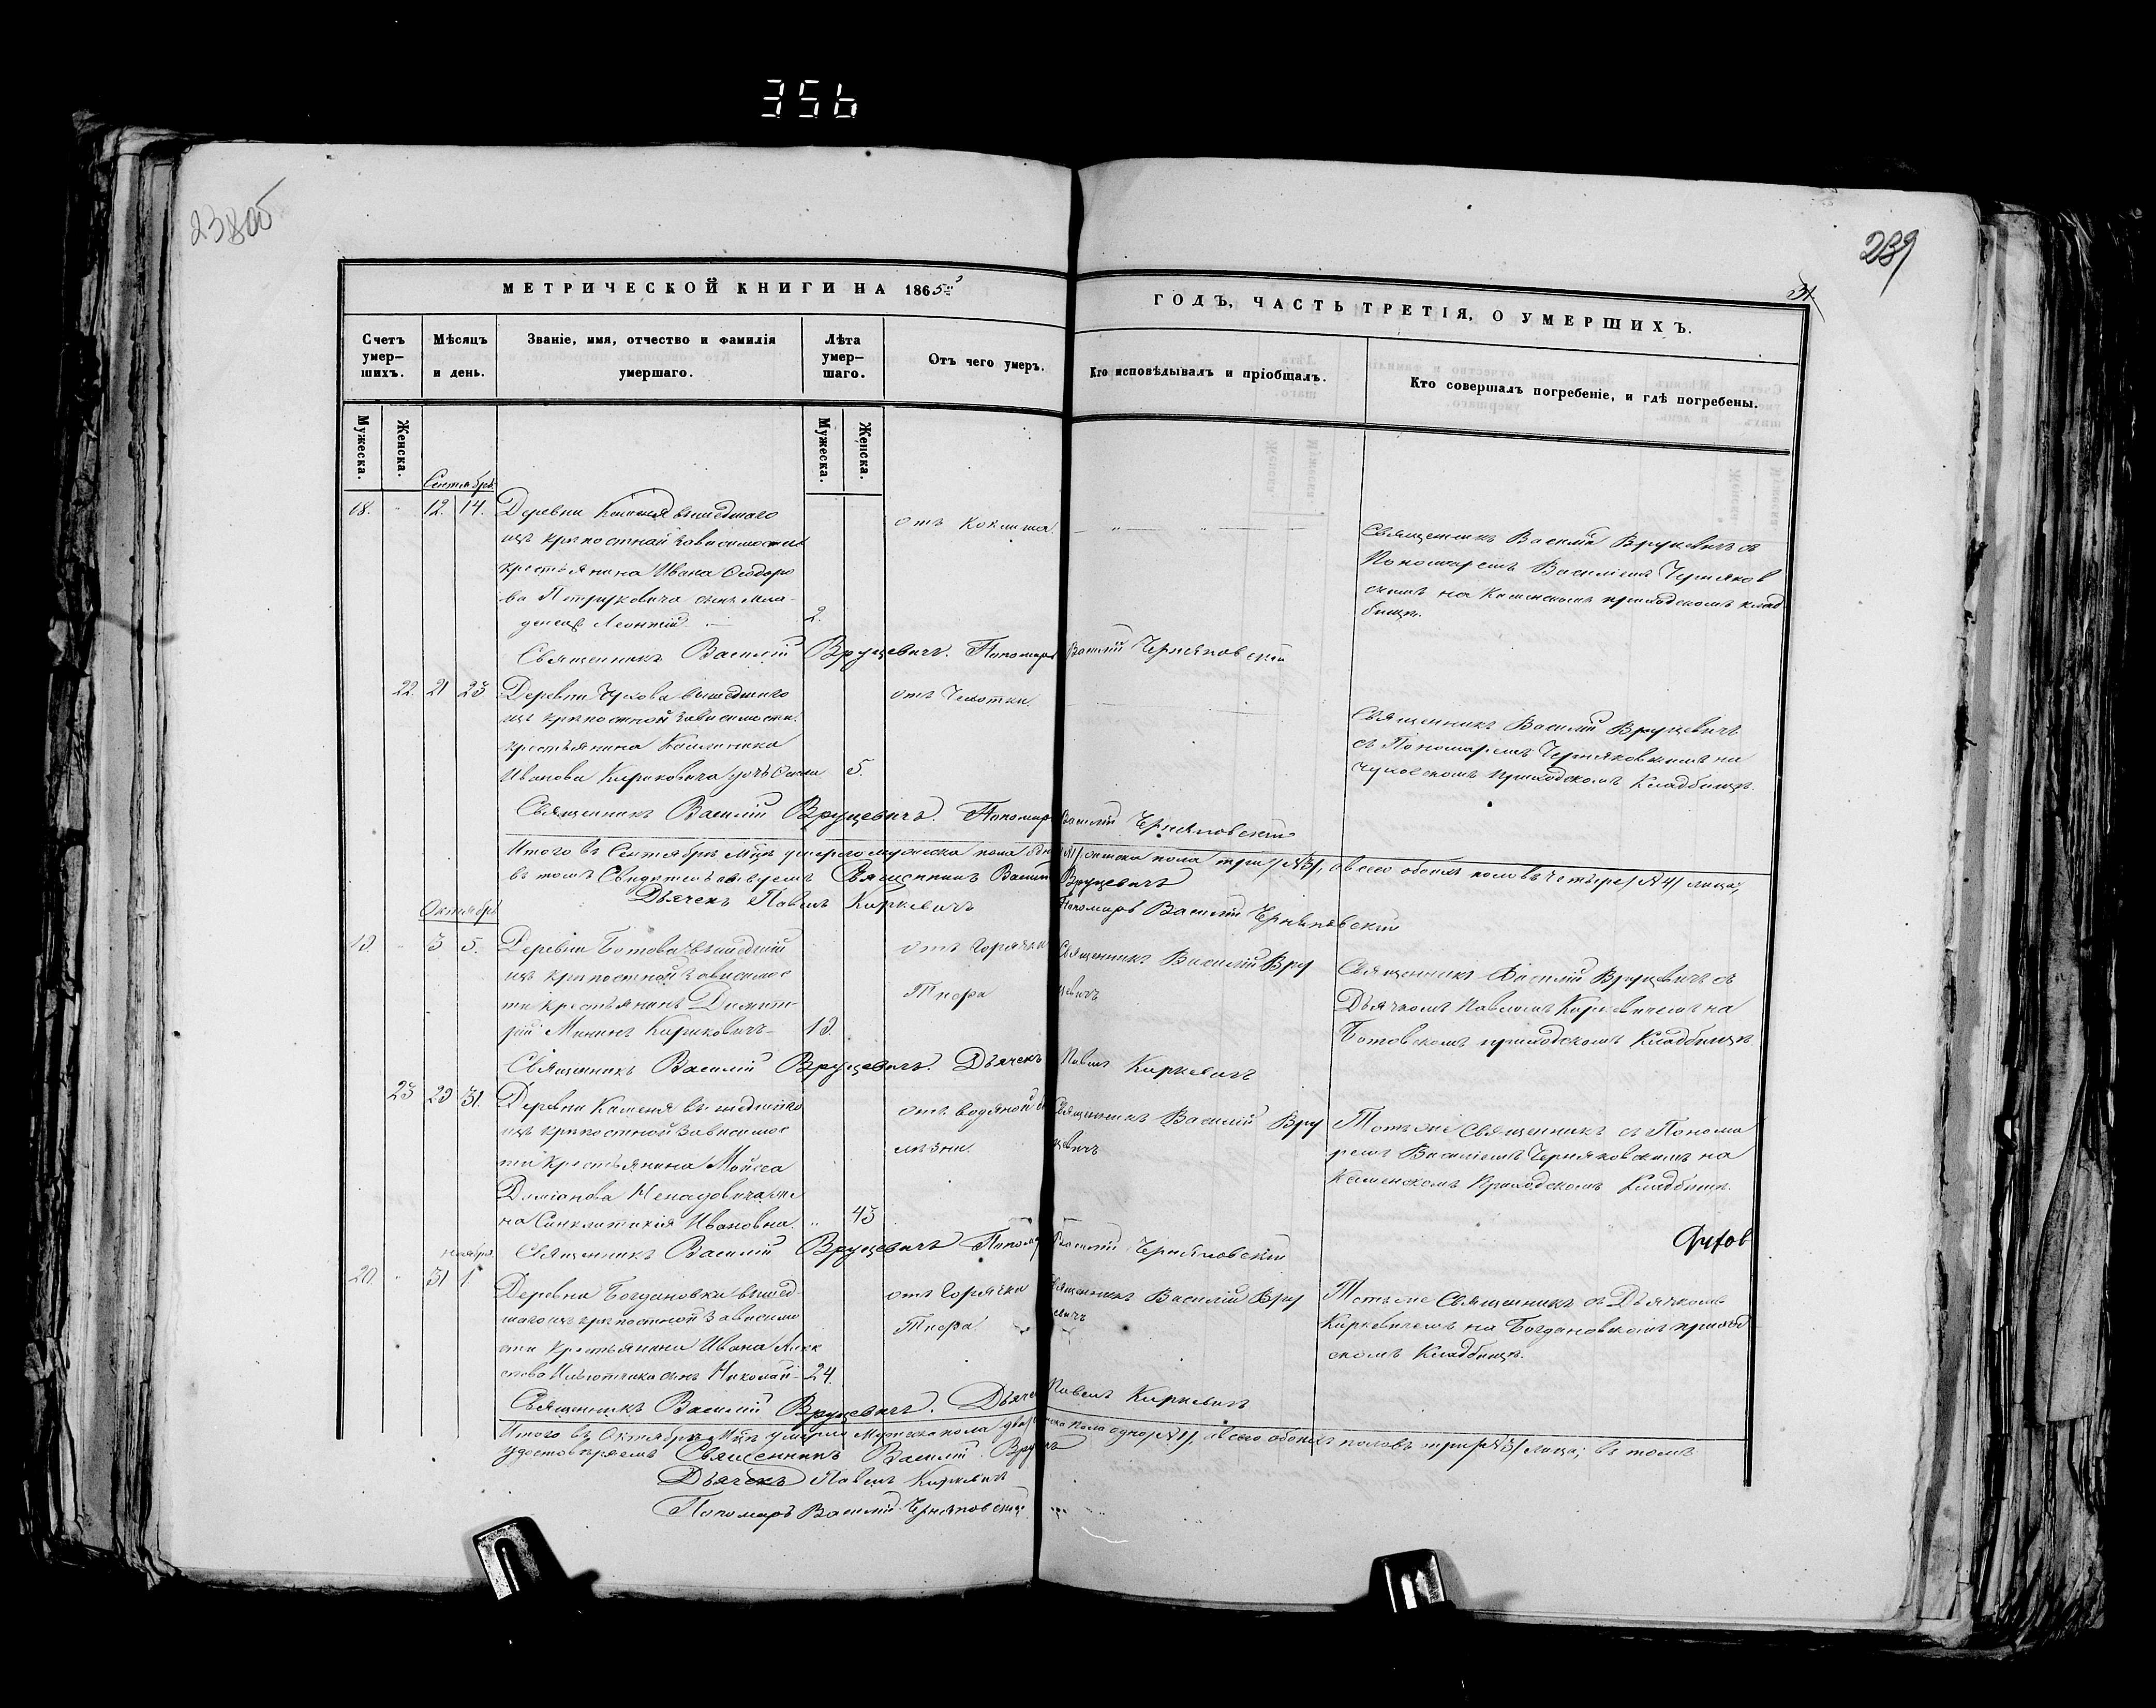 356
239
31
МЕТРИЧЕСКОЙ КНИГИ НА 1865
ГОДЪ, ЧАСТЬ ТРЕТІЯ, О УМЕРШИХЪ.
Счетъ умер-шихъ.
Мѣсяцъ и день.
Званіе, имя, отчество и фамилія умершаго.
Лѣта умер-шаго.
Отъ чего умеръ.
Кто исповѣдывалъ и пріобщалъ.
Кто совершалъ погребеніе, и гдѣ погребены.
Мужеска.
Женска.
Мужеска.
Женска.
Сентябрь
18. 12. 14. Деревни Каменя вышедшаго
изъ крѣпостной зависимости
крестьянина Ивана Ѳеодоро
ва Петруковича сынъ мла-
денецъ Леонтій 2.
отъ Коклюша
Священникъ Василій Вруцевичъ съ
Пономаремъ Василіемъ Черняков
скимъ на Каменскомъ приходскомъ клад
бищѣ.
Священникъ Василій Вруцевичъ. Пономарь Василій Черняковскій
22. 21 23 Деревни Чухова вышедшаго
изъ крѣпостной зависимости
крестьянина
Иванова Кириковича дочь 5.
отъ Чахотки
Священникъ Василій Вруцевичъ
съ Пономаремъ Черняковскимъ на
Чуховскомъ приходскомъ Кладбищѣ.
Священникъ Василій Вруцевичъ. Пономарь Василій Черняковскій
Итого въ Сентябрѣ м-цѣ умерло мужеска пола женска пола три /№3/, а всего обоихъ половъ четыре /№4/ лица;
въ томъ Свидѣтельствуемъ Священникъ Василій Вруцевичъ
Дьячекъ Павелъ Киркевичъ Пономарь Василій Черняковскій
Октябрь
19. 3 5. Деревни Ботова вышедшій
изъ крѣпостной зависимос
ти крестьянинъ Димит
рій Мининъ Кириковичъ 19.
отъ Горячки
Тифа
Священникъ Василій Вру
цевичъ
Священникъ Василій Вруцевичъ съ
Дьячкомъ Павломъ Киркевичемъ на
Ботовскомъ приходскомъ Кладбищѣ
Священникъ Василій Вруцевичъ. Дьячекъ Павелъ Киркевичъ
23 29 31. Деревни Каменя вышедшаго
изъ крѣпостной зависимос
ти крестьянина Мойсея
Даміанова Ненадовича же
на Синклитикія Ивановна. 43
отъ водяной бо
лѣзни.
Священникъ Василій Вру
цевичъ
Тотъ же Священникъ съ Понома
ремъ Василіемъ Черняковскимъ на
Каменскомъ Приходскомъ Кладбищѣ.
Священникъ Василій Вруцевичъ Пономарь Василій Черняковскій
Ноябрь
20. 31 1 Деревни Богдановки вышед-
шаго изъ крѣпостной зависимо
сти крестьянина Ивана Алек
сынъ Николай 24.
отъ Горячки
Тифа
Священникъ Василій Вру
цевичъ
Тотъ же Священникъ съ Дьячкомъ
Киркевичемъ на Богдановскомъ приход
скомъ Кладбищѣ.
Священникъ Василій Вруцевичъ. Дьячекъ Павелъ Киркевичъ
Итого въ Октябрѣ м-цѣ умерло мужеска пола два женска пола одно /№1/, а всего обоихъ половъ три /№3/ лица; въ томъ
удостовѣряемъ Священникъ Василій Вруцевичъ
Дьячекъ Павелъ Киркевичъ
Пономарь Василій Черняковскій